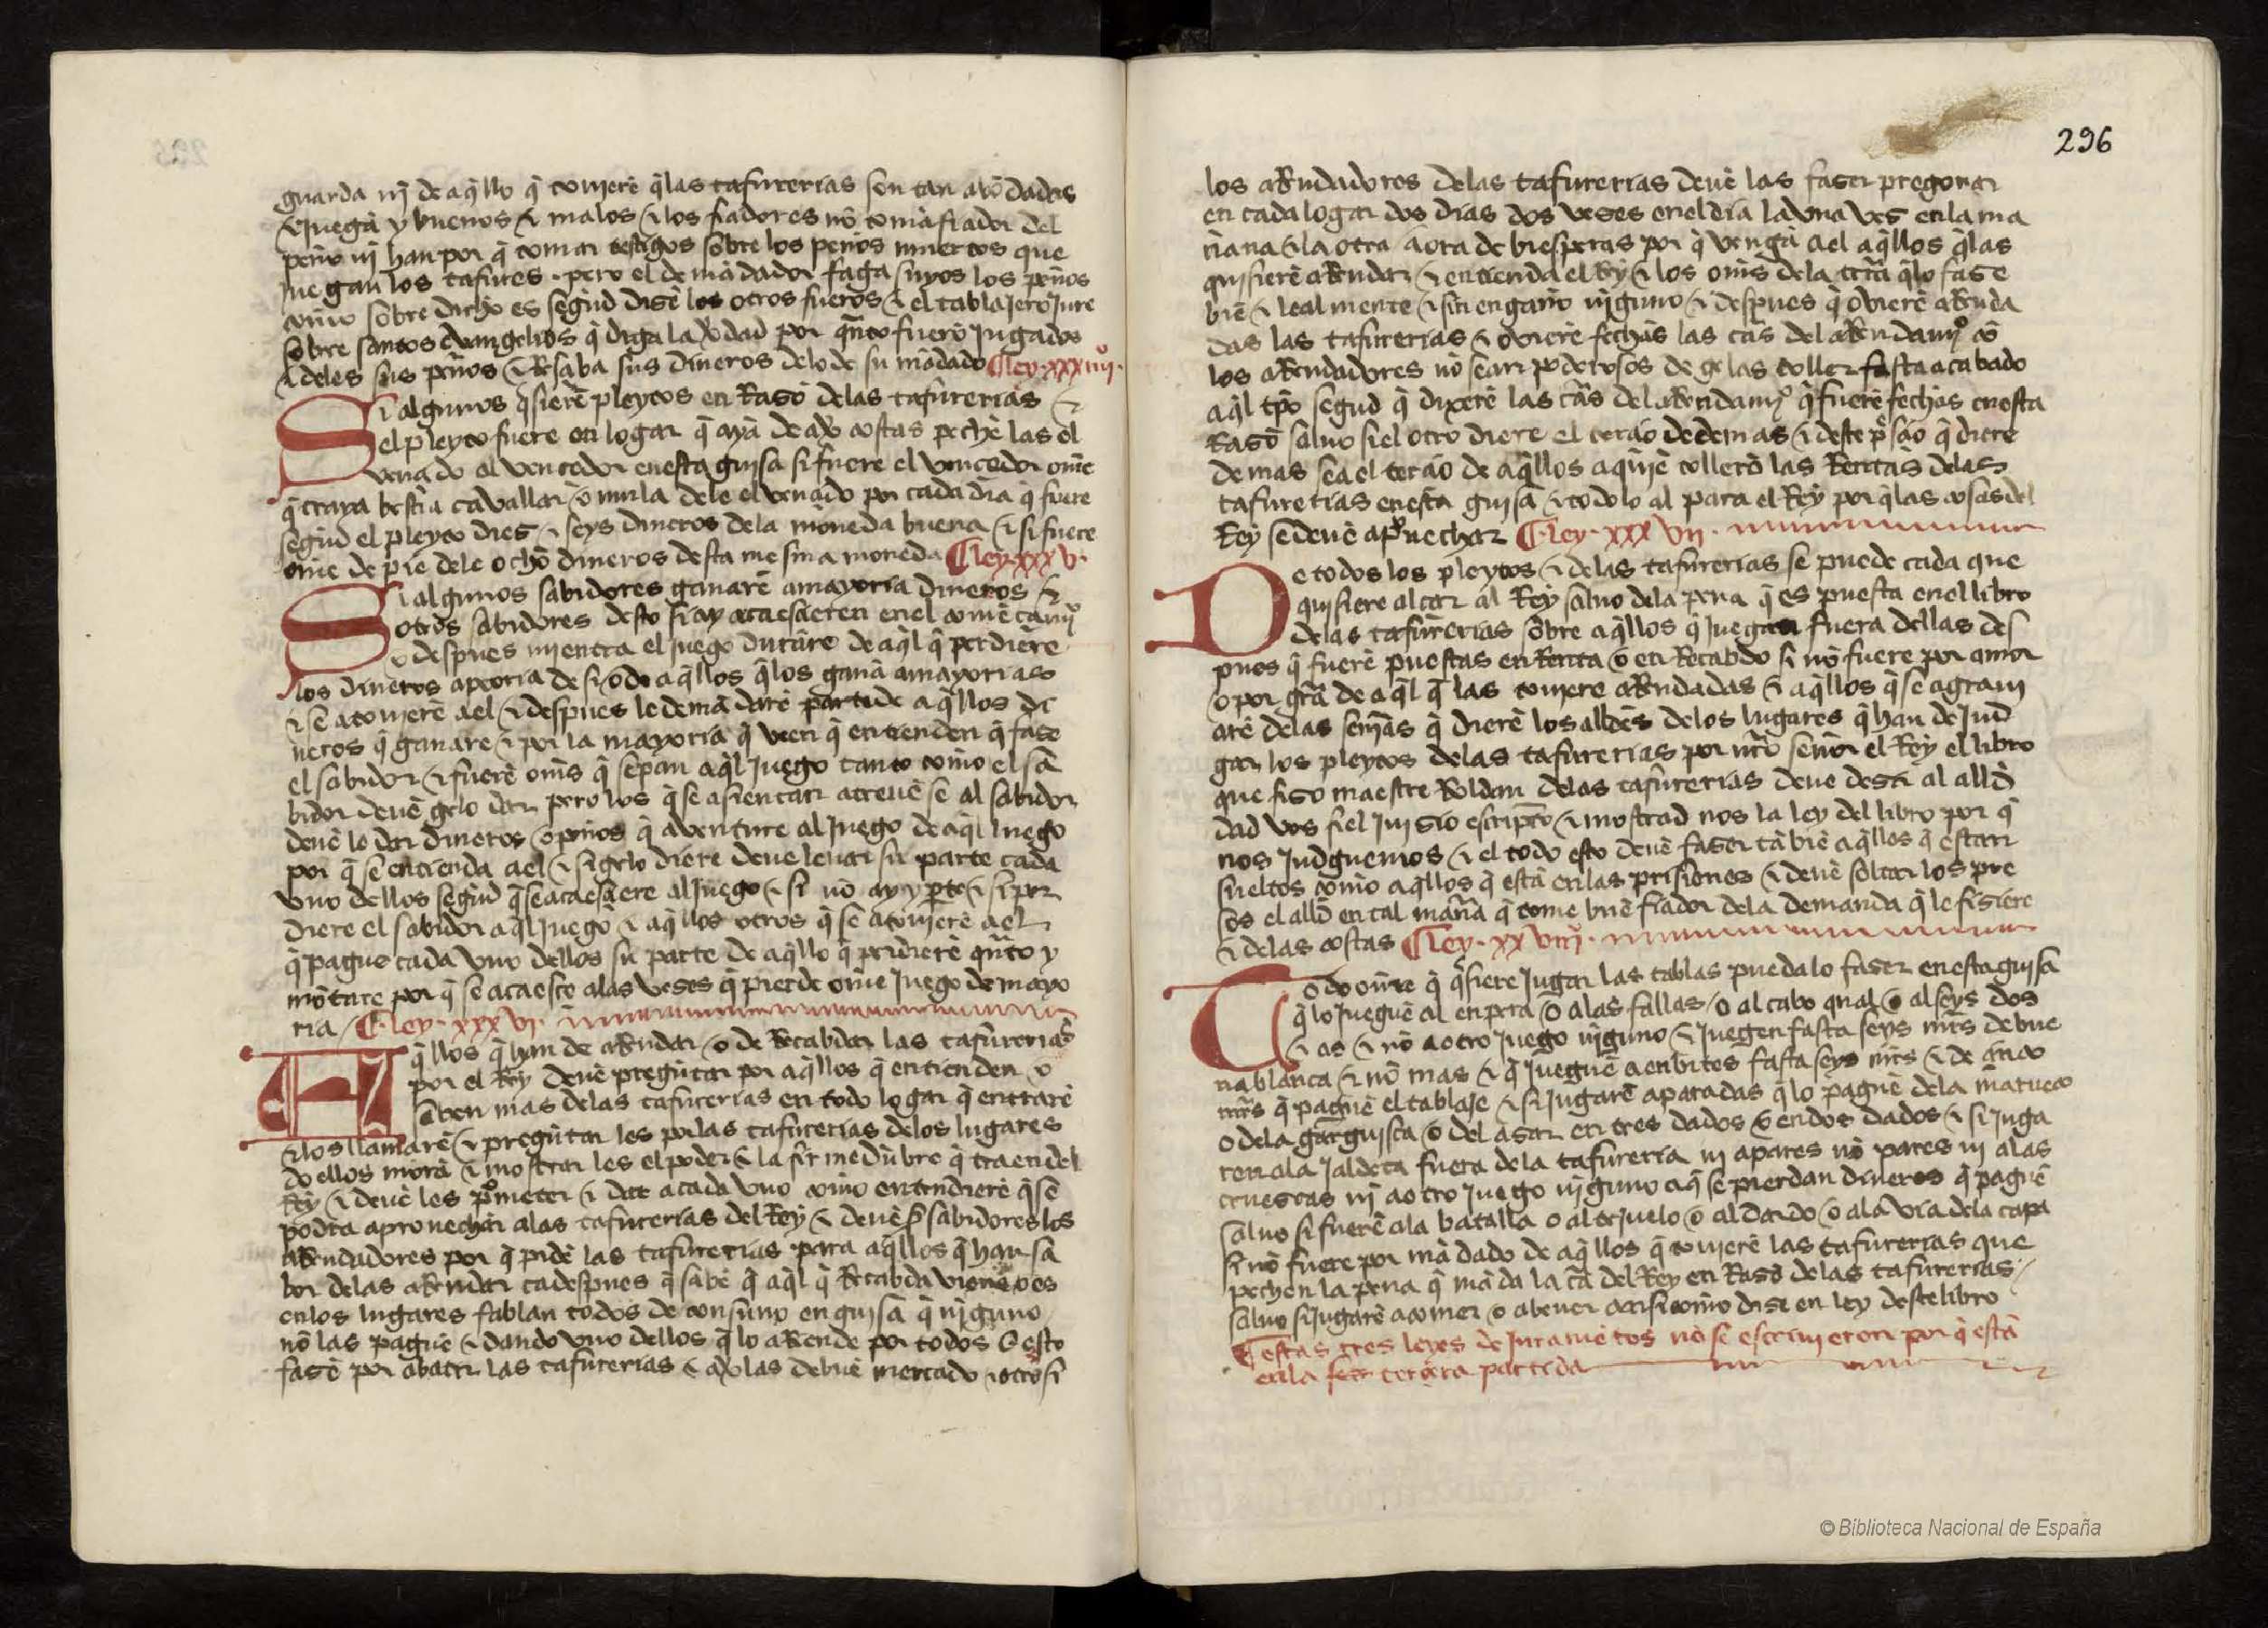 guarda nj̃ de aq̃llo q̃ toujerẽ q̃ las tafurerias son tan abõdadas
& juegã y buenos & malos & los fiadores nõ tomã fiador del
peño nj̃ han por q̃ tomar testigos sobre los peños muertos que
juegan los tafures . pero el demãdador faga suyos los peños
como sobre dicho es segũd disẽ los otros fueros & el tablajero jure
sobre santos euangelios q̃ diga la v̾dad por qñto fuerõ jugados
& deles sus peños & Resçiba sus dineros delo de su mãdado ¶ley . xxxiiijº .
Si algunos q̾sierẽ pleytos en Rasõ delas tafurerias &
el pleyto fuere en logar q̃ ayã de aṽ costas pechẽ las el
vençido al vençedor en esta guisa si fuere el vençedor ome
q̃ traya bestia cauallar o mula dele el vençido por cada dia q̃ fuere
segũd el pleyto dies & seys dineros dela moneda buena & si fuere
ome de pie dele ocho dineros desta mesma moneda ¶ley . xxx v .
Si algunos sabidores ganarẽ a mayoria dineros &
otros sabidores desto si ay acaesçieren en el comẽçamj̃º
o despues mientra el juego durare de aq̃l q̃ perdiere
los dineros a peoria de si o de aq̃llos q̃ los ganã a mayorias
& se atoujerẽ a el & despues le demãdarẽ parte de aq̃llos di
neros q̃ ganare & por la mayoria q̃ veen q̃ entienden q̃ fase
el sabidor & fuerẽ oms̃ q̃ sepan aq̃l juego tanto como el sa
bidor deuẽ gelo dar pero los q̃ se asientan atreuẽ se al sabidor
deuẽ le dar dineros o peños q̃ auenture al juego de aq̃l luego
por q̃ se entienda a el & si gelo diere deue leuar su parte cada
vno dellos segũd q̃ se acaesçiere al juego & si nõ ay y p̱te & si per
diere el sabidor aq̃l juego & aq̃llos otros q̃ se atoujerẽ a el
q̃ pague cada vno dellos su parte de aq̃llo q̃ perdierẽ qñto y
mõtare por q̃ se acaesçe alas veses q̃ pierde ome juego de mayo
ria / ¶ley . xxx vj .
Aq̃llos q̃ han de aRendar o de Recabdar las tafurerias
por el Rey deuẽ pregũtar por aq̃llos q̃ entienden o
saben mas delas tafurerias en todo logar q̃ entrarẽ
& los llamarẽ & pregũtar les por las tafurerias delos lugares
do ellos morã & mostrar les el poder & la firmedũbre q̃ traen del
Rey & deuẽ les p̊meter & dar a cada vno como entendierẽ q̃ se
podra aprouechar alas tafurerias del Rey & deuẽ s̃ sabidores los
aRendadores por q̃ pidẽ las tafurerias para aq̃llos q̃ han sa
bor delas aRendar ca despues q̃ sabẽ q̃ aq̃l q̃ Recabda vienẽ dos
en los lugares fablan todos de consuno en guisa q̃ nj̃guno
nõ las pague & dando vno dellos q̃ lo aRende por todos & esto
fasẽ por abater las tafurerias & aṽ las de buẽ mercado & otrosi
296
los aRendadores delas tafurerias deuẽ las faser pregonar
en cada logar dos dias dos veses en el dia la vna ves en la ma
ñana & la otra a ora de biesperas por q̃ vengã a el aq̃llos q̃ las
quisierẽ aRendar & entienda el Rey & los oms̃ dela trr̃a q̃ lo fase
biẽ & lealmente & sin engaño nj̃guno & despues q̃ ouierẽ aRenda
das las tafurerias & ouierẽ fechas las cãs del aRendamj̃º cõ
los aRendadores nõ sean poderosos de gelas toller fasta acabado
aq̃l tp̃o segũd q̃ dixerẽ las cãs del aRendamj̃º q̃ fuerẽ fechas en esta
Rasõ saluo si el otro diere el terçio de demas & deste p̾sçio q̃ diere
demas sea el terçio de aq̃llos a quiẽ tollerõ las Rentas delas
tafurerias en esta guisa & todo lo al para el Rey por q̃ las cosas del
Rey se deuẽ ap̊uechar ¶ley . xxx vij .
De todos los pleytos & delas tafurerias se puede cada que
quisiere alçar al Rey saluo dela pena q̃ es puesta en el libro
delas tafurerias sobre aq̃llos q̃ juegan fuera dellas des
pues q̃ fuerẽ puestas en Renta o en Recabdo si nõ fuere por amor
o por gr̃a de aq̃l q̃ las toujere aRendadas & aq̃llos q̃ se agraui
arẽ delas sem̃as q̃ dierẽ los alldẽs delos lugares q̃ han de jud
gar los pleytos delas tafurerias por nr̃o señor el Rey el libro
que fiso maestre Roldan delas tafurerias deue desir al alld̃
dad vos fiel juisio escripto & mostrad nos la ley del libro por q̃
nos judguemos & el todo esto deuẽ faser tã biẽ aq̃llos q̃ estan
sueltos como aq̃llos q̃ estã en las prisiones & deuẽ soltar los pre
sos el alld̃ en tal manr̃a q̃ tome buẽ fiador dela demanda q̃ le fisiere
& delas costas ¶ley . xx viijº .
Todo omẽ q̃ q̾siere jugar las tablas puedalo faser en esta guisa
q̃ lo jueguẽ al enpera o alas fallas / o al cabo qual o al seys dos
& as & nõ a otro juego nj̃guno & jueguen fasta seys mr̃s de bue
na blanca & nõ mas & q̃ jueguẽ a enbites fasta seys mr̃s & de çinco
mr̃s q̃ paguẽ el tablaje & si jugarẽ apartadas q̃ lo paguẽ dela marueco
o dela garguista o del asar en tres dados o en dos dados & si juga
ren ala jaldeta fuera dela tafureria nj̃ a pares nõ pares nj̃ alas
cruestas nj̃ a otro juego nj̃guno a q̃ se pierdan dineros q̃ paguẽ
saluo si fuerẽ ala batalla o al tejuelo o al dardo o ala via dela capa
si nõ fuere por mãdado de aq̃llos q̃ toujerẽ las tafurerias que
pechen la pena q̃ mãda la cã del Rey en Rasõ delas tafurerias /
saluo si jugarẽ a comer o a beuer asi como dise en ley deste libro
¶estas tres leyes de juramẽtos nõ se escriuieron por q̃ estã
en la terçera partida
© Biblioteca Nacional de España